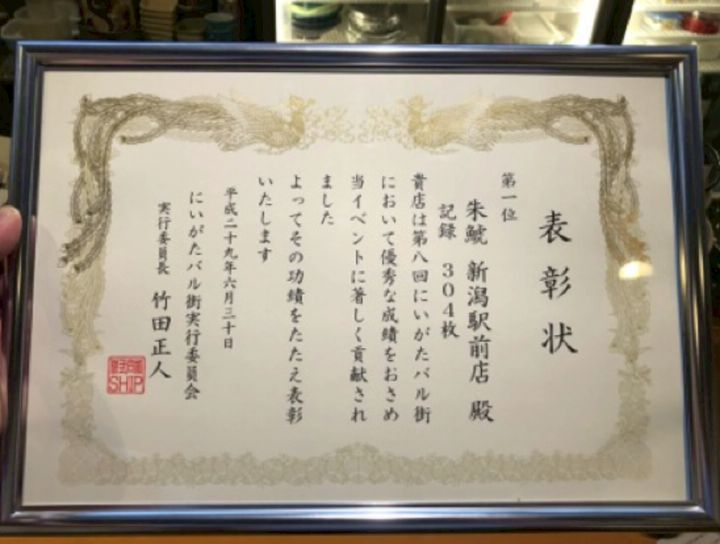 表彰状
第一位
朱鯱 新潟駅前店 殿
記録 304枚
貴店は第八回にいがたバル街
において優秀な成績をおさめ
当イベントに著しく貢献され
ました
よってその功績をたたえ表彰
いたします
平成二十九年六月三十日
にいがたバル街実行委員会
実行委員長 竹田正人
SHIP